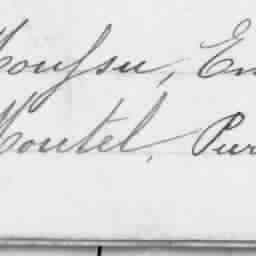 Moussu, Em
Moutel, Pur